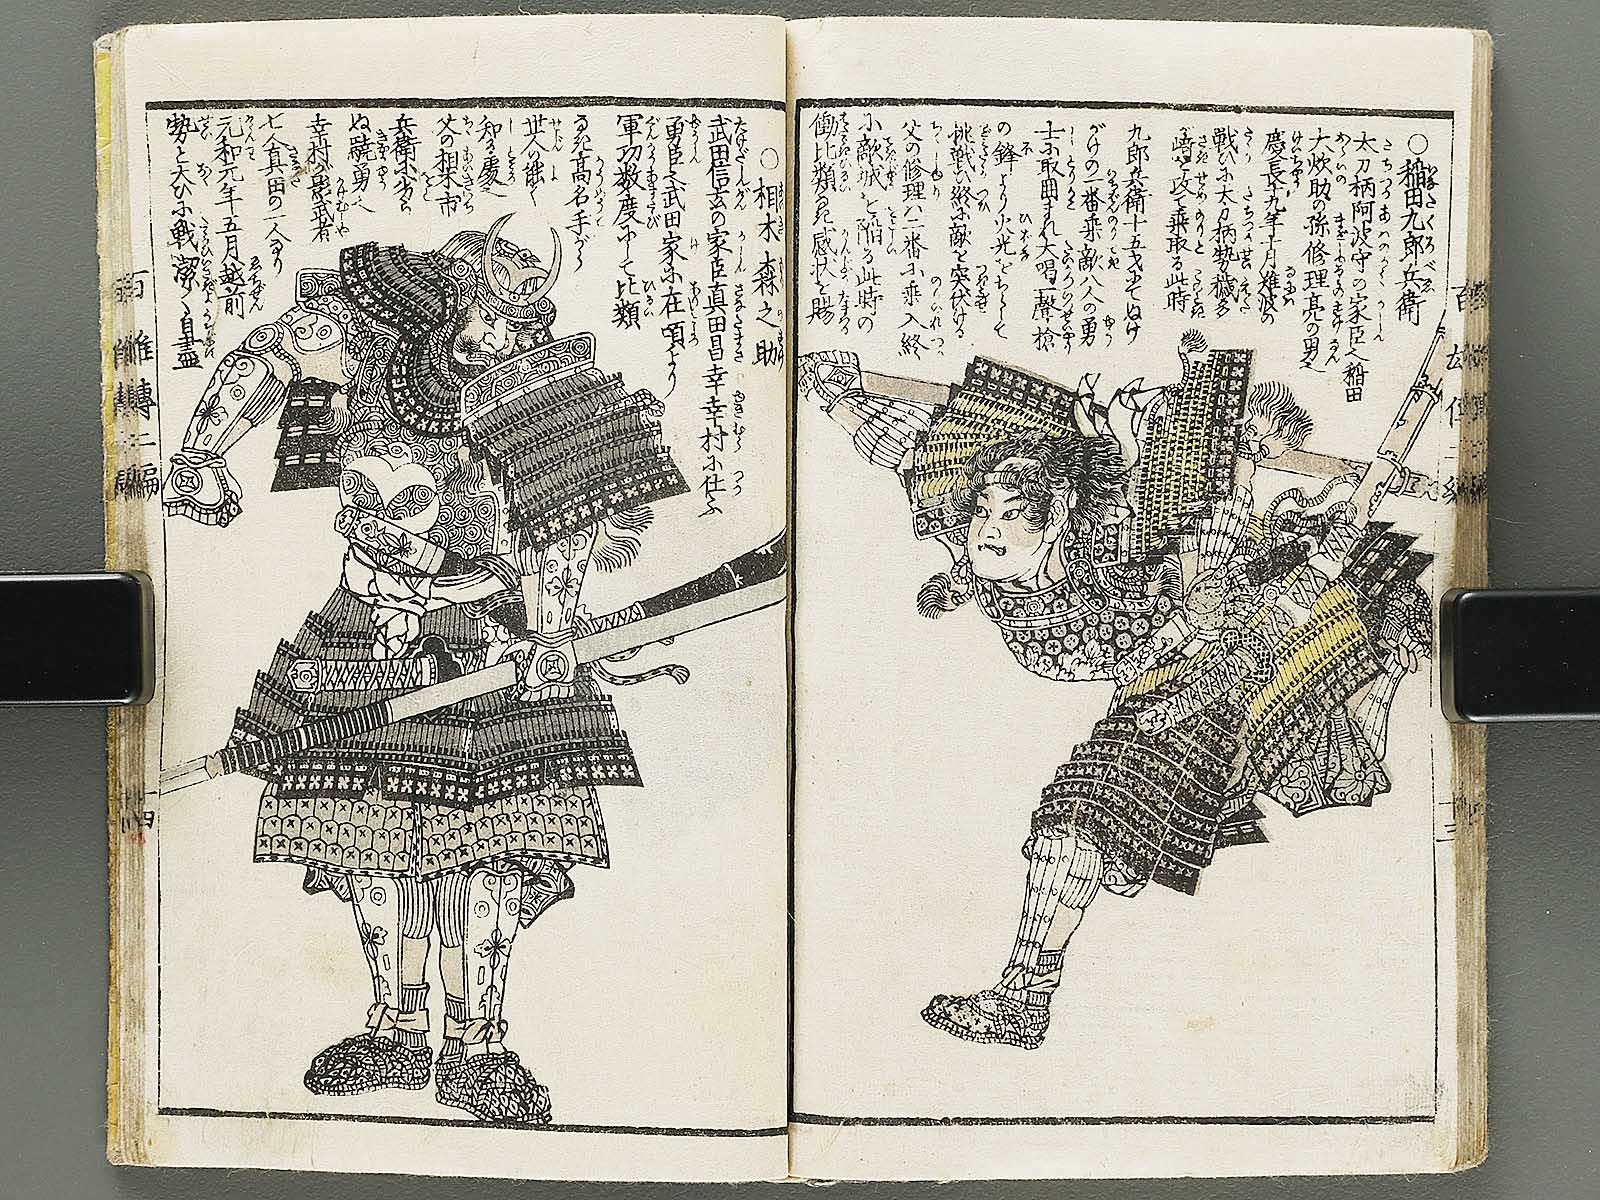 ○稲田九郎兵衛
太刀柄阿波守の家臣へ稲田
大炊助の孫修理亮の男へ
慶長十九年十月難波の
戦ひに太刀柄勢穢多
崎を攻て乗取る此時
九郎兵衛十五才にてぬけ
がけの一番乗敵八人の勇
士に取囲まれ大唱一聲槍
の鋒より火光をちらして
挑戦ひ終に敵を突伏ける
父の修理ハ二番に乗入終
に敵城を陥る此時の
働比類なき感状を賜
○相木森之助
武田信玄の家臣真田昌幸幸村に仕ふ
勇臣也武田家に在頃より
軍功数度にして比類
なき高名手がら
世人の能く
知る處へ
父の相木市
兵衛におとら
ぬ驍勇へ
幸村が影武者
七人真田の一人なり
元和元年五月越前
勢と大ひに戦潔く自盡
百雄傳二編
十四
百雄傳二編
十三